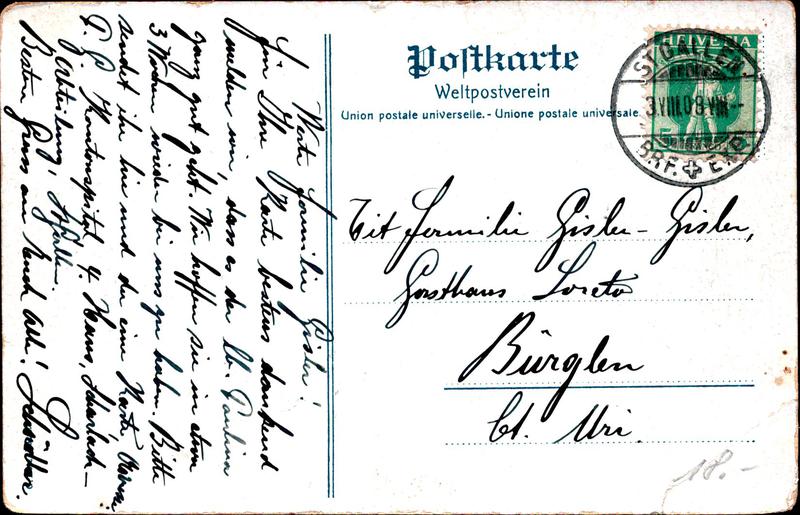 Postkarte
Weltpostverein
Union postale universelle. - Unione postale universale
HELVETIA
5
ST. GALLEN
3.VIII.08.VIII--
BRF. EXP.
Tit Familie Gisler-Gisler,
Gasthaus Loreto
Bürglen
Ct. Uri
18.-
Werte Familie Gisler!
Für Ihre Karte bestens dankend
melden wir, dass es der lb. Paulina
ganz gut geht. Wir hoffen sie in etwa
3 Wochen wieder bei uns zu haben. Bitte
sendet ihr hin und da eine Karte,
Kantonspital 4. Haus,
Abteilung, St. Gallen.
Besten Gruss an Euch alle!